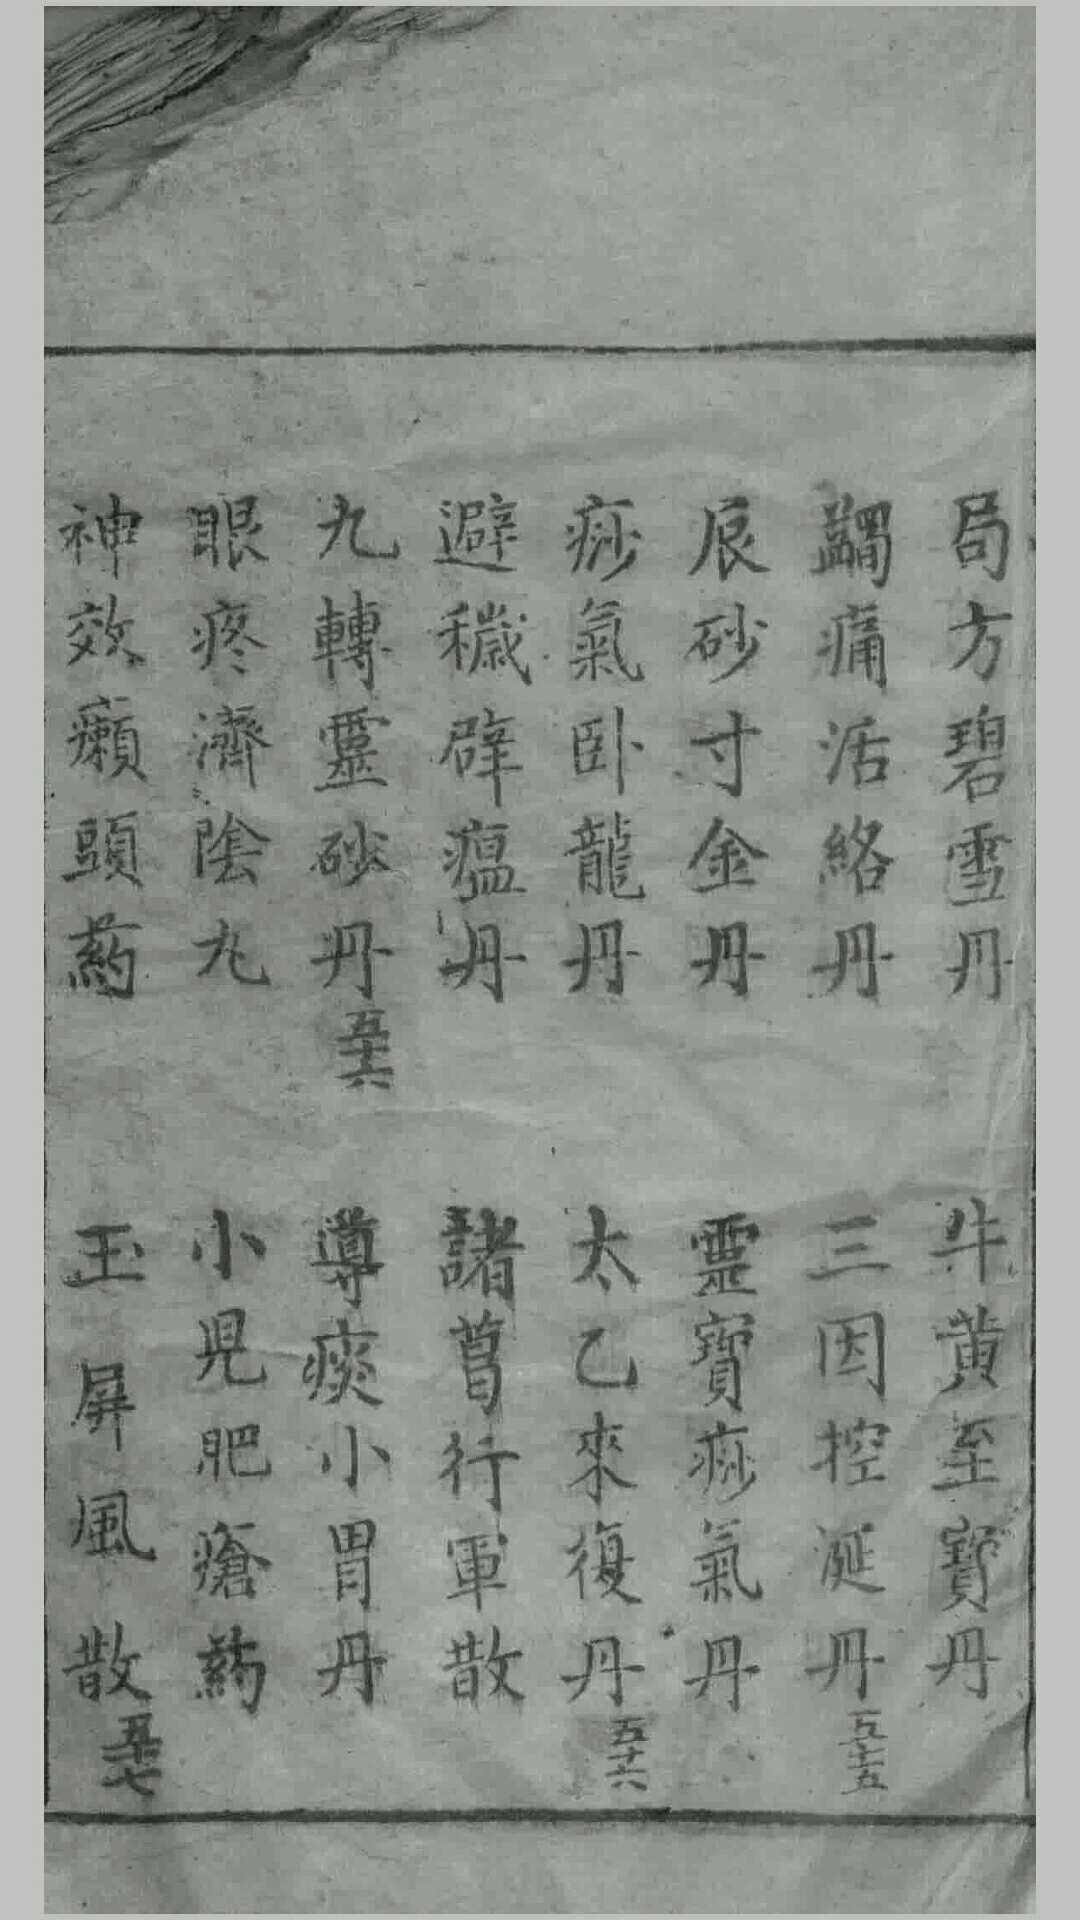 局方碧雪丹
牛黄至寳丹
蠲痛活絡丹
三因控涎丹 五十五
辰砂寸金丹
靈寳痧氣丹
痧氣卧龍丹
太乙來復丹 五十六
避穢辟瘟丹
諸葛行軍散
九轉靈砂丹 五十六
導痰小胃丹
眼疼濟陰丸
小児肥瘡药
神效癩頭药
玉屏風散 五十七